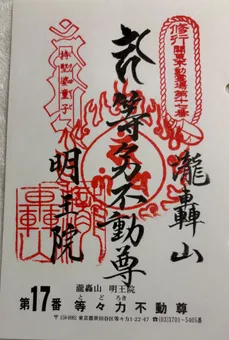 修行
関東不動霊場第十七番
持堅婆童子
等々力不動尊
瀧轟山
明王院
瀧轟山 明王院
とどろき
第17番 等々力不動尊
〒158-0082 東京都世田谷区等々力1-22-47 ☎(03)3701-5405番